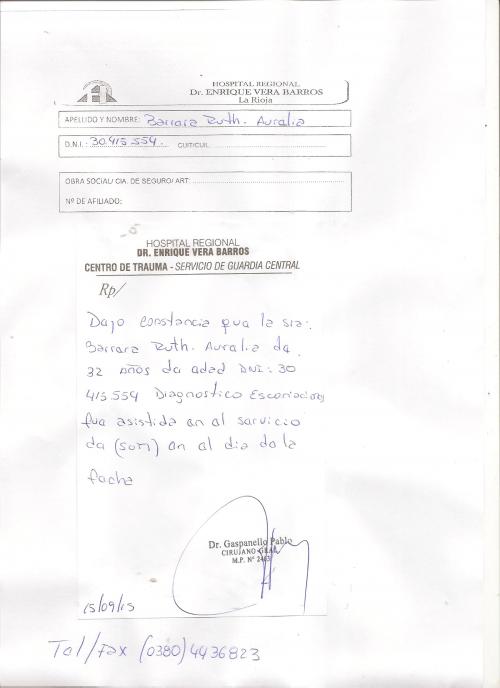 HOSPITAL REGIONAL
Dr. ENRIQUE VERA BARROS
La Rioja
APELLIDO Y NOMBRE: Barrera Ruth. Aurelia
D.N.I.: 30.415.554. CUIT/CUIL:
OBRA SOCIAL/ CIA. DE SEGURO/ ART:
Nº DE AFILIADO:
HOSPITAL REGIONAL
DR. ENRIQUE VERA BARROS
CENTRO DE TRAUMA - SERVICIO DE GUARDIA CENTRAL
Rp/
Dejo constancia que la sra:
Barrera Ruth. Aurelia de
32 años de edad DNI: 30
415554 Diagnostico Escoriaciones
fue asistida en el servicio
de (sum) en el dia de la
fecha
Dr. Gaspanello Pablo
CIRUJANO GRAL.
M.P. Nº 2463
15/09/15
Tel/Fax (0380) 4436823